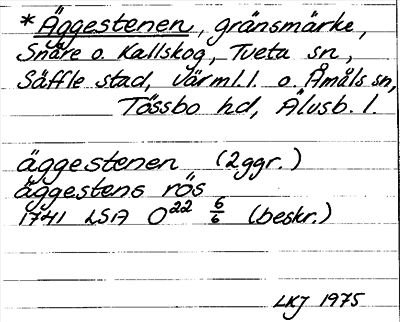 *Äggestenen, gränsmärke,
Snåre o. Kallskog, Tveta sn,
Säffle stad, Värml.l. o. Åmåls sn,
Tössbo hd, Älvsb. l.
äggestenen (2ggr.)
äggestens rös
1741 LSA O22 6/6 (beskr.)
LKJ 1975